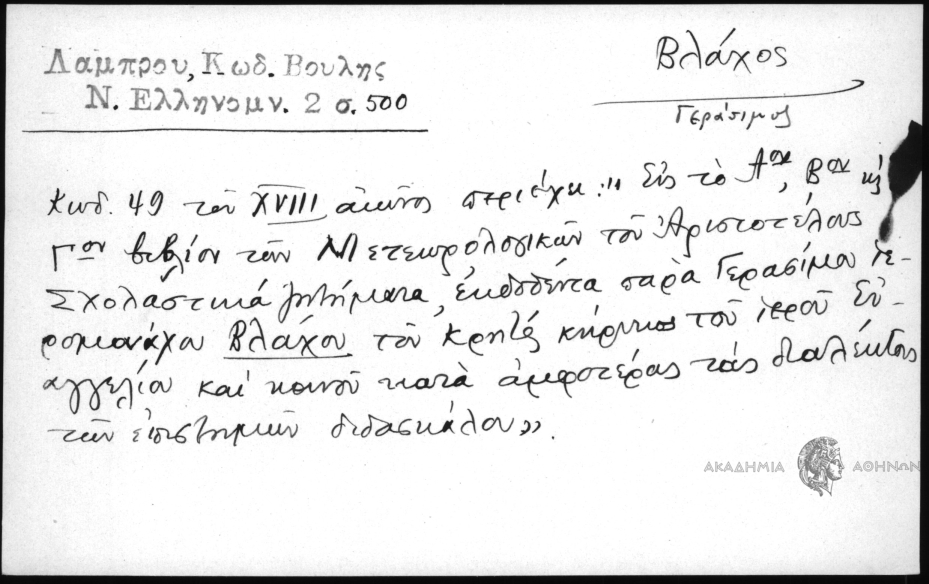 Λαμπρου, Κωδ. Βουλης
Ν. Ελληνομν. 2 σ. 500
Βλάχος
Γεράσιμος
Κωδ. 49 τοῦ XVIII αἰῶνος περιέχει: "Εἰς τὸ Αον, Βον κ
Γον βιβλίον τῶν Μετεωρολογικῶν τοῦ Ἀριστοτέλους
Σχολαστικά ζητήματα, ἐκδοθέντα παρὰ Γερασίμου ἱε-
ρομονάχου Βλάχου τοῦ Κρητός κήρυκος τοῦ ἱεροῦ Εὐ-
αγγελίου καί κοινοῦ κατὰ ἀμφοτέρας τάς διαλέκτους
τῶν ἐπιστημῶν διδασκάλου».
ΑΚΑΔΗΜΙΑ ΑΘΗΝΩΝ